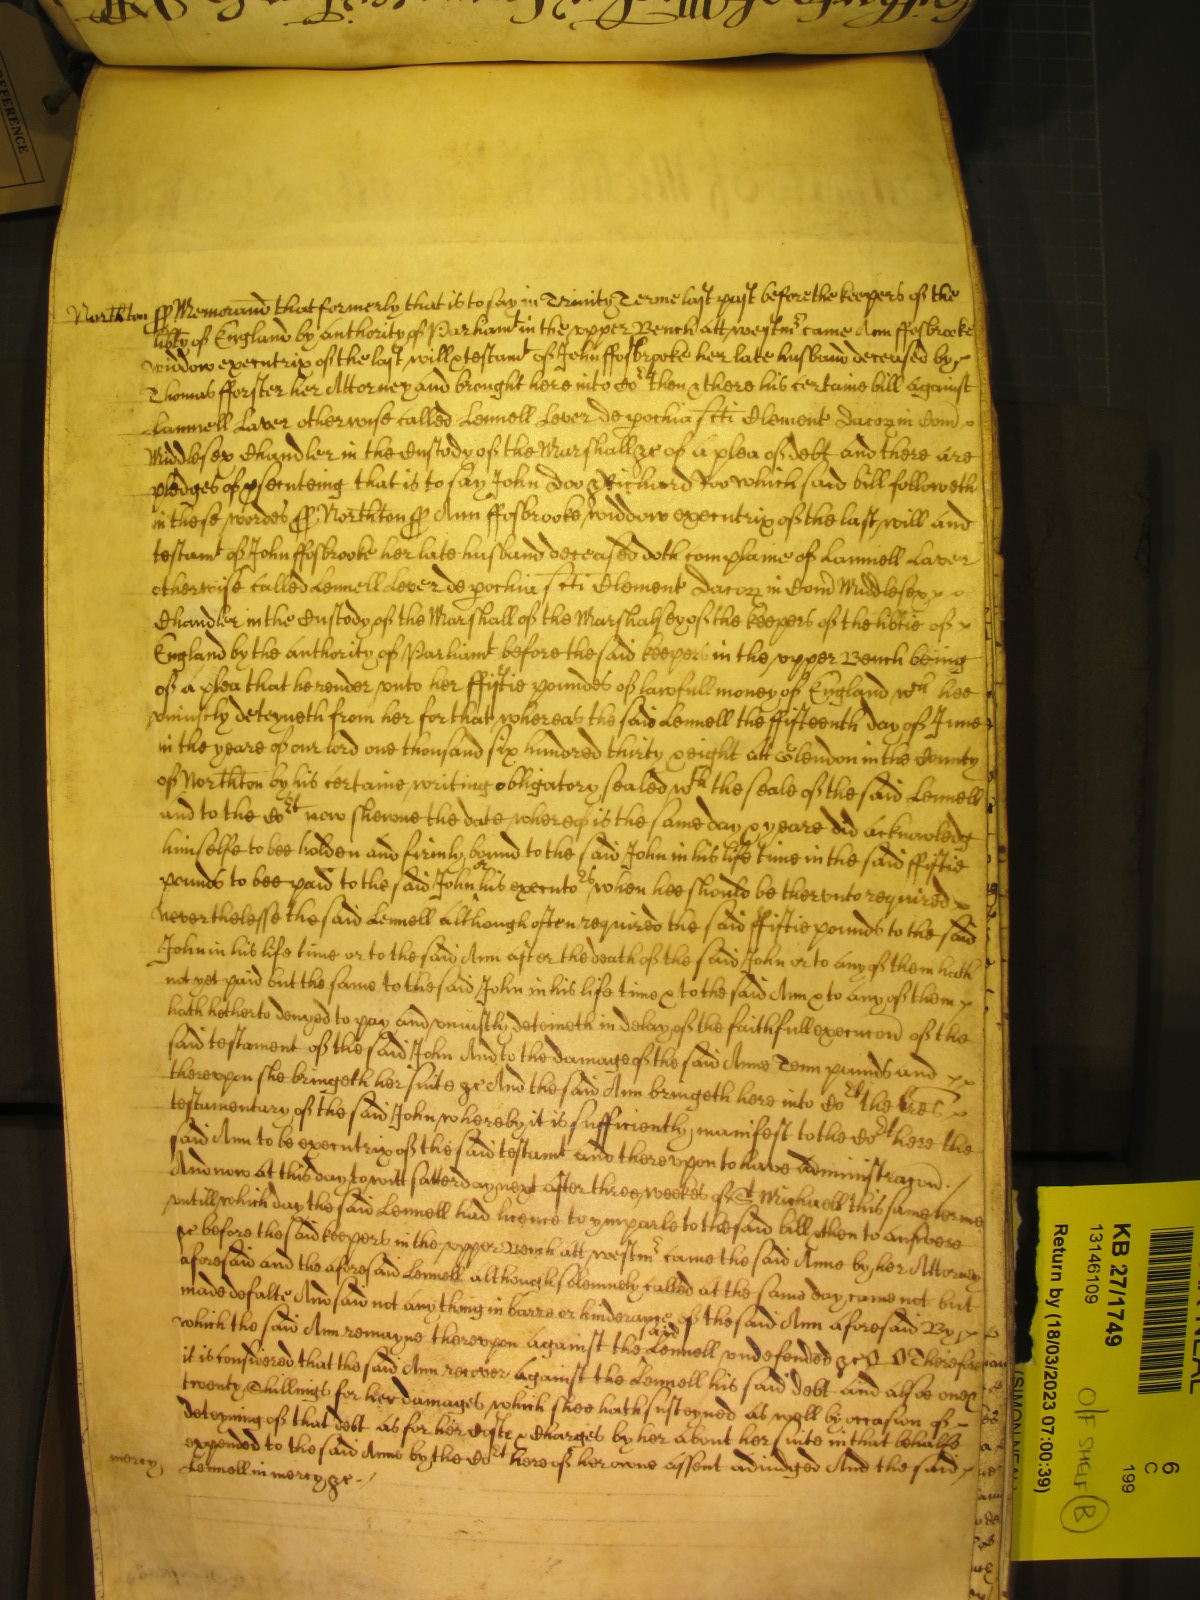 Northton ss Memorand that formerly that is to say in Trinity Terme last past before the keepers of the
libty of England by authority of Parliamt in the upper Bench att westmr came Ann ffosbrooke
widdow executrix of the last will & testamt of John ffosbrooke her late husband deceased by
Thomas fforster her Attorney and brought here into Cort then & there his certaine bill against
Lannell Laver otherwise called Lennell Lever de pochia scti Clement Dacor in Com
Middlesex Chandler in the Custody of the Marshall &c of a plea of debt and there are
pledges of psecuteing that is to say John Doo & Richard Roo which said bill followeth
in these wordes ss Northton ss Ann ffosbrooke widdow executrix of the last will and
testamt of John ffosbrooke her late husband deceased doth complaine of Lannell Laver
otherwise called Lennell Lever de pochia scti Clement Dacor in Com Middlesex
Chandler in the Custody of the Marshall of the Marshalsey of the keepers of the libtie of
England by the authority of Parliamt before the said keepers in the upper Bench being
of a plea that he render unto her ffiftie poundes of lawfull money of England wch hee
uniustly deteyneth from her for that whereas the said Lennell the ffifteenth day of June
in the yeare of our lord one thousand six hundred thirty & eight att Glendon in the County
of Northton by his certaine writing obligatory sealed wth the seale of the said Lennell
and to the Cort now shewne the date whereof is the same day & yeare did acknowledg
himselfe to bee holden and firmly bound to the said John in his life time in the said ffiftie
pounds to bee paid to the said John or his executors when hee should be therunto required
neverthelesse the said Lennell although often required the said ffiftie pounds to the said
John in his life time or to the said Ann after the death of the said John or to any of them hath
not yet paid but the same to the said John in his life time & to the said Ann & to any of them
hath hetherto denyed to pay and uniustly deteineth in delay of the faithfull execucon of the
said testament of the said John And to the damage of the said Anne Tenn pounds and
thereupon she bringeth her suite &c And the said Ann bringeth here into Cort the lres
testamentary of the said John whereby it is sufficiently manifest to the Cort here the
said Ann to be executrix of the said testamt and thereupon to have administracon.
And now at this day to witt satterday next after three weekes of St Michaell this same terme
untill which day the said Lennell had licence to ymparle to the said bill & then to answere
&c before the said keepers in the upper Bench att westmr came the said Anne by her Attorney
aforesaid and the aforesaid Lennell although solemnely called at the same day came not but
made defalte And said not any thing in barre or hinderance of the said Ann aforesaid By
which the said Ann remayne thereupon against the said Lennell undefended &c Therefore
it is considered that the said Ann recover against the Lennell his said debt and alsoe
twenty shillings for her damages which shee hath susteyned as well by occasion of
deteyning of that debt as for her Coste & Charges by her about her suite in that behalfe
expended to the said Anne by the Cort here of her owne assent adiudged And the said
mercy Lennell in mercy &c
REFERENCE
KB 27/1749
13146109
Return by (18/03/2023 07:00:39)
6
C
199
O/F SHELF B
(SIMON NEAL)